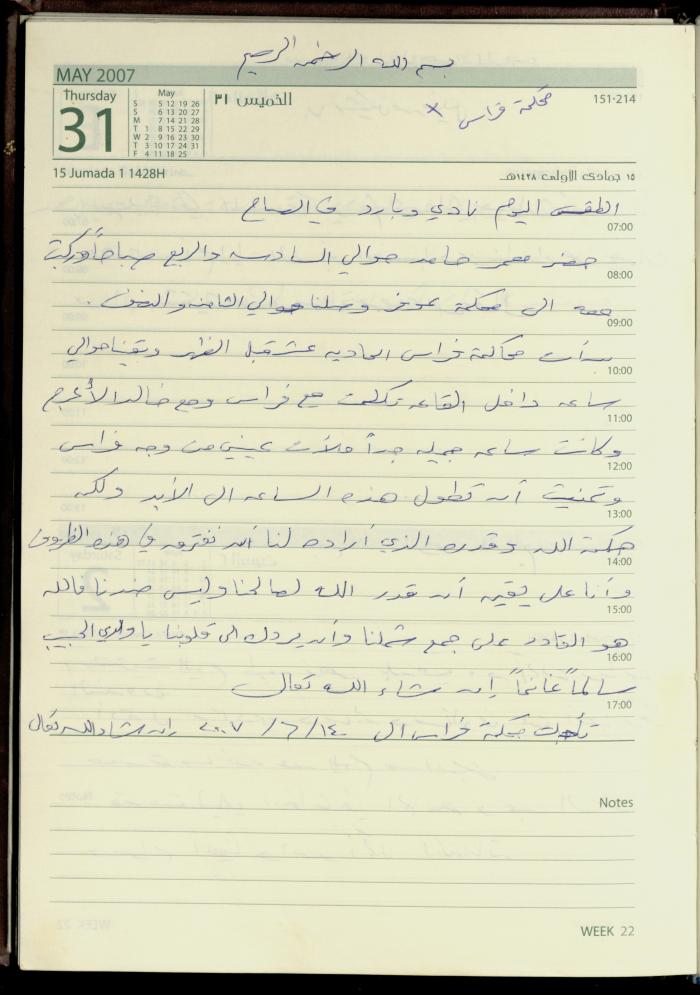 بسم الله الرحمن الرحيم
MAY 2007
Thursday
31
May
S 5 12 19 26
S 6 13 20 27
M 7 14 21 28
T 1 8 15 22 29
W 2 9 16 23 30
T 3 10 17 24 31
F 4 11 18 25
الخميس ٣١
محكمة فراس x
151-214
15 Jumada 1 1428H
١٥ جمادى الأولى ١٤٢٨هـ
الطقس اليوم نادي وبارد في الصباح
07:00
حضر معمر حامد حوالي السادسه والربع صباحاً وركبت
08:00
معه الى محكمة عوفر وصلنا حوالي الثامنه والنصف .
09:00
بدأت محاكمة فراس الحاديه عشر قبل الظهر وبقينا حوالي
10:00
ساعه داخل القاعه تكلمت مع فراس ومع خالد الأعرج
11:00
وكانت ساعه جميله جداً ملأت عيني من وجه فراس
12:00
وتمنيت أن تطول هذه الساعه الى الأبد ولكن
13:00
حكمة الله وقدره الذي أراده لنا أن نفترق في هذه الظروف
14:00
وأنا على يقين أن قدر الله لصالحنا وليس ضدنا فالله
15:00
هو القادر على جمع شملنا وأن يردك الى قلوبنا يا ولدي الحبيب
16:00
سالماً غانماً إن شاء الله تعالى
17:00
تأجلت محكمة فراس الى ١٤/٦/٢٠٠٧ إن شاء الله تعالى
Notes
WEEK 22